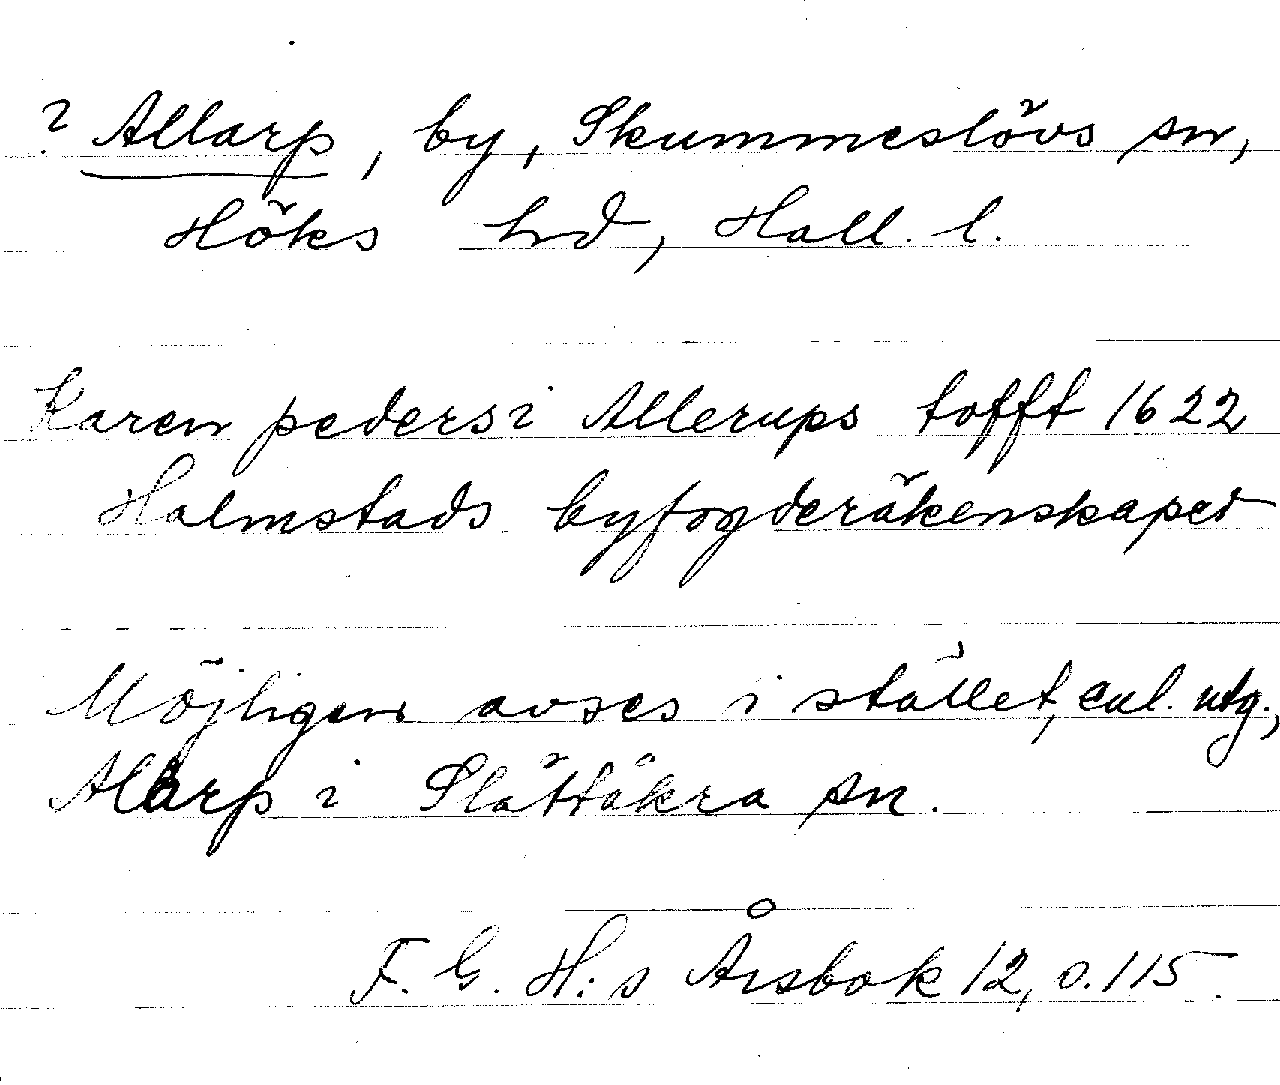 ? Allarp, by, Skummeslövs sn,
Höks hd, Hall. l.
Karen peders i Allerups tofft 1622
Halmstads byfogderäkenskaper
Möjligen avses i stället, enl. utg.,
Alarp i Slättåkra sn.
F. G. H:s Årsbok 12, s. 115.